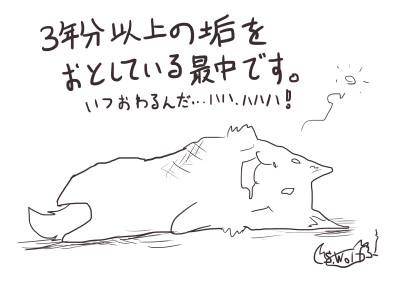 3年分以上の垢を
おとしている最中です。
いつおわるんだ…ハハ.ハハハ!
S.Wolf